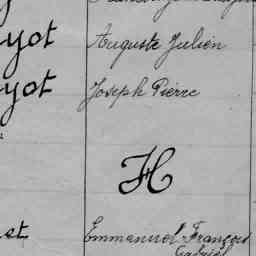 yot Auguste Julien
yot Joseph Pierre
H
et Emmanuel François
Gabriel